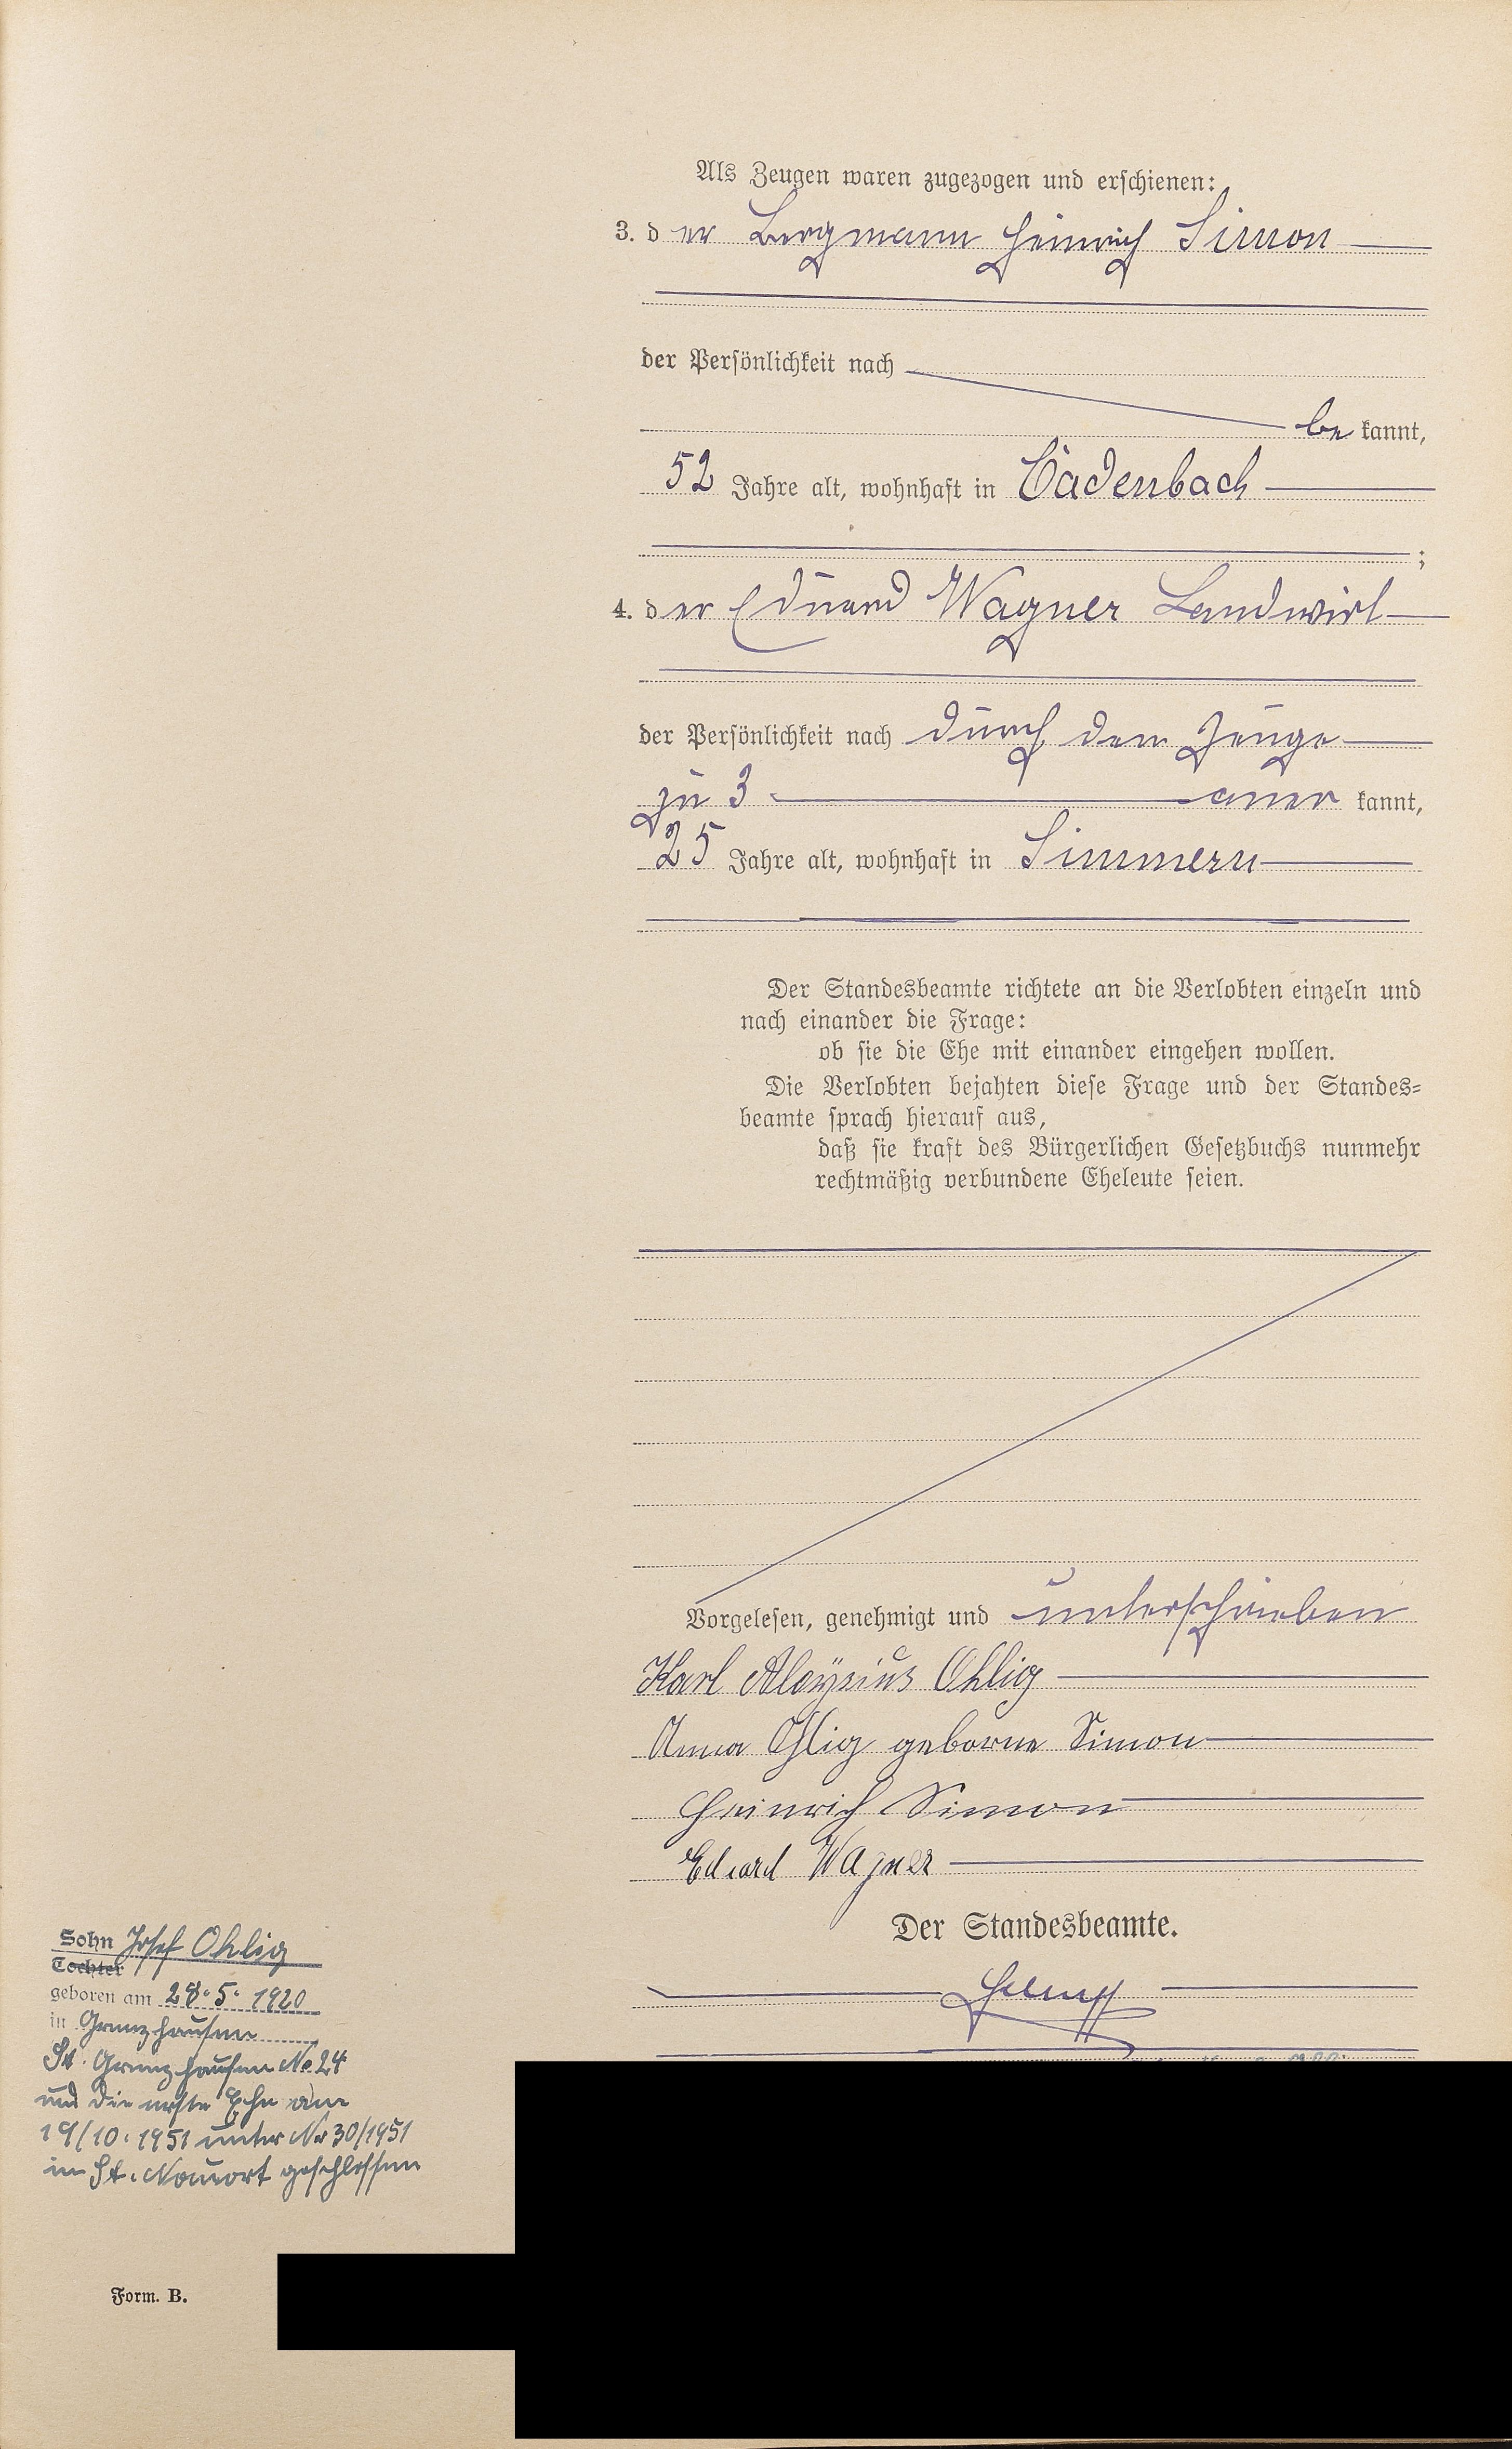 Als Zeugen waren zugezogen und erschienen:
3. der Bergmann Heinrich Simon
der Persönlichkeit nach
be kannt,
52 Jahre alt, wohnhaft in Cadenbach
;
4. der Eduard Wagner Landwirt
der Persönlichkeit nach durch den Zeuge
zu 3 aner kannt,
25 Jahre alt, wohnhaft in Simmern
Der Standesbeamte richtete an die Verlobten einzeln und
nach einander die Frage:
ob sie die Ehe mit einander eingehen wollen.
Die Verlobten bejahten diese Frage und der Standes-
beamte sprach hierauf aus,
daß sie kraft des Bürgerlichen Gesetzbuchs nunmehr
rechtmäßig verbundene Eheleute seien.
Vorgelesen, genehmigt und unterschrieben
Karl Aloysius Ohlig
Anna Ohlig geborne Simon
Heinrich Simon
Eduard Wagner
Der Standesbeamte.
Sohn Josef Ohlig
Tochter
geboren am 28.5.1920
in Grenzhausen
St. Grenzhausen No 24
und die erste Ehe am
19/10.1951 unter Nr 30/1951
im St. Nauort geschlossen
Form. B.